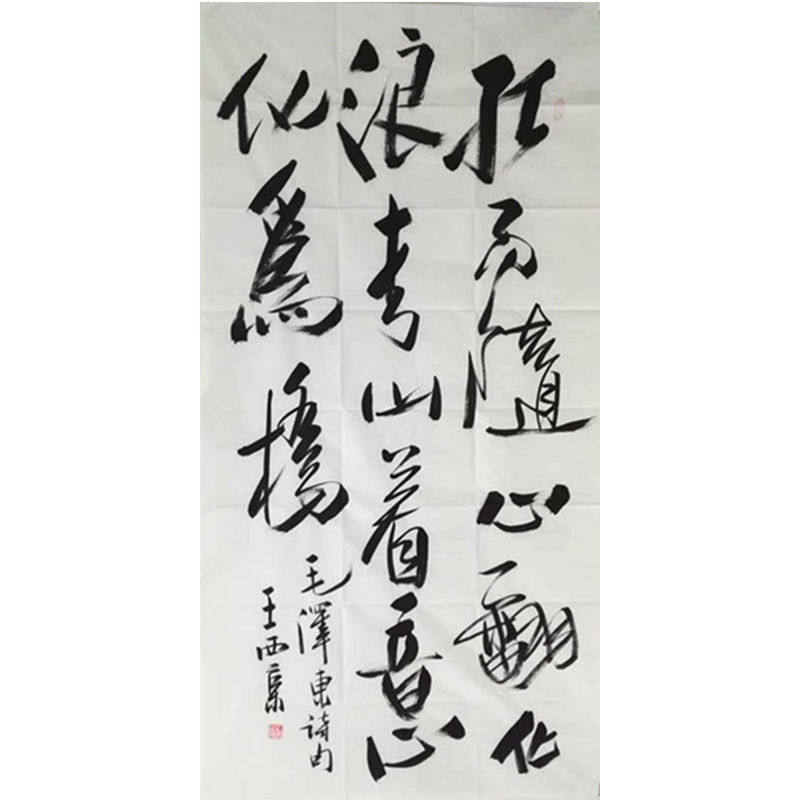 红雨隨心翻作
浪青山着意
化爲橋
毛澤東詩句
王西